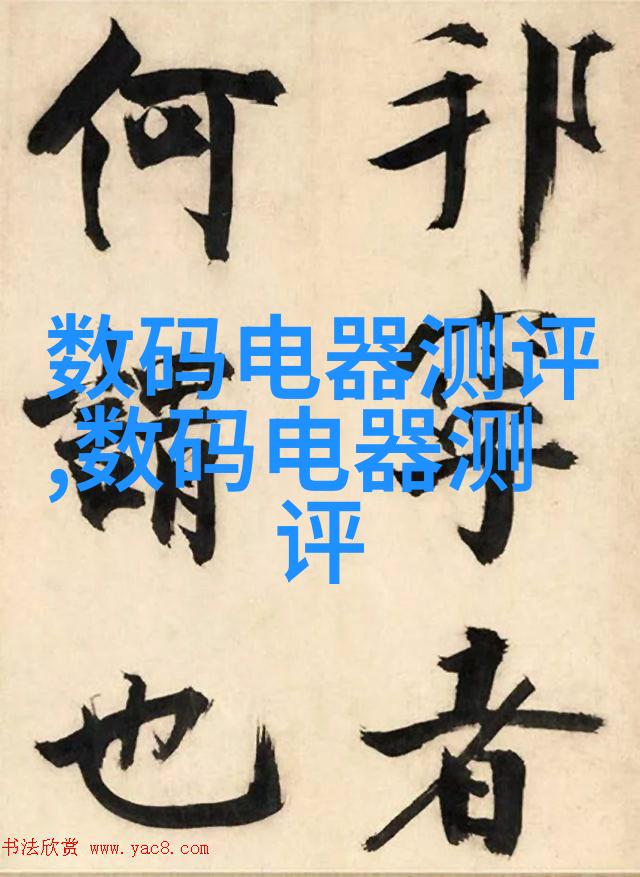 邦寧者
何謂也
数码电器测评
,数码电器测
评
书法欣赏 www.yac8.com